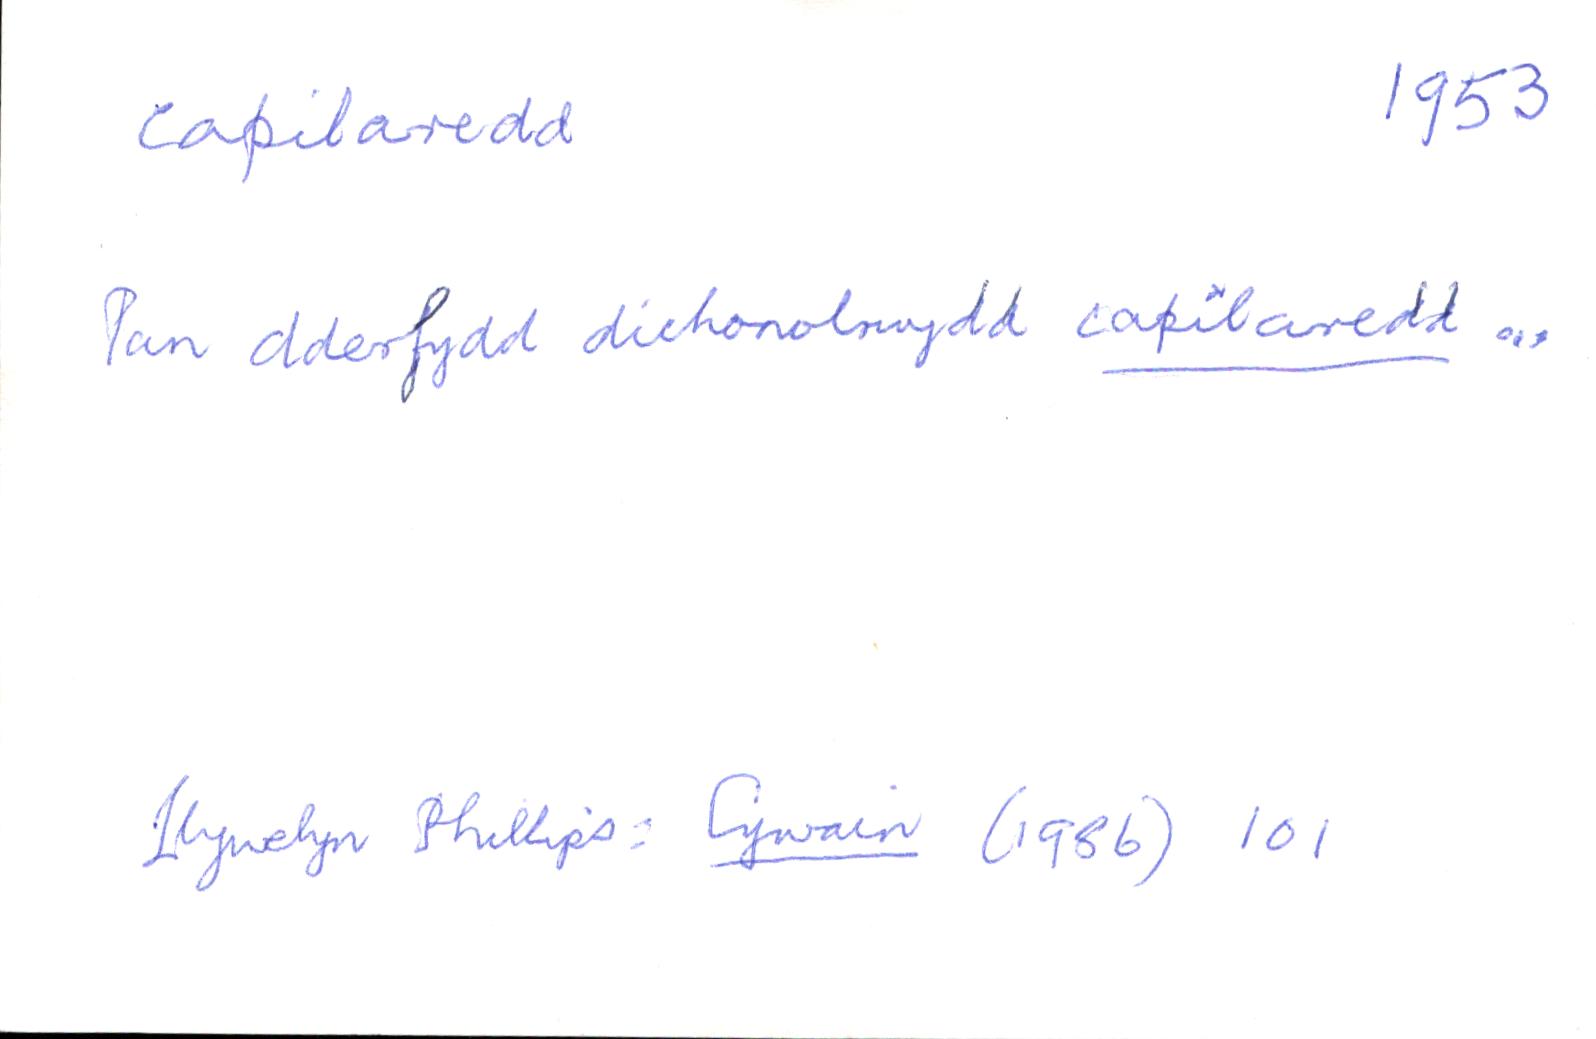 capilaredd 1953
Pan dderfydd dichonolrwydd capilaredd ...
Llywelyn Phillips: Cywain (1986) 101